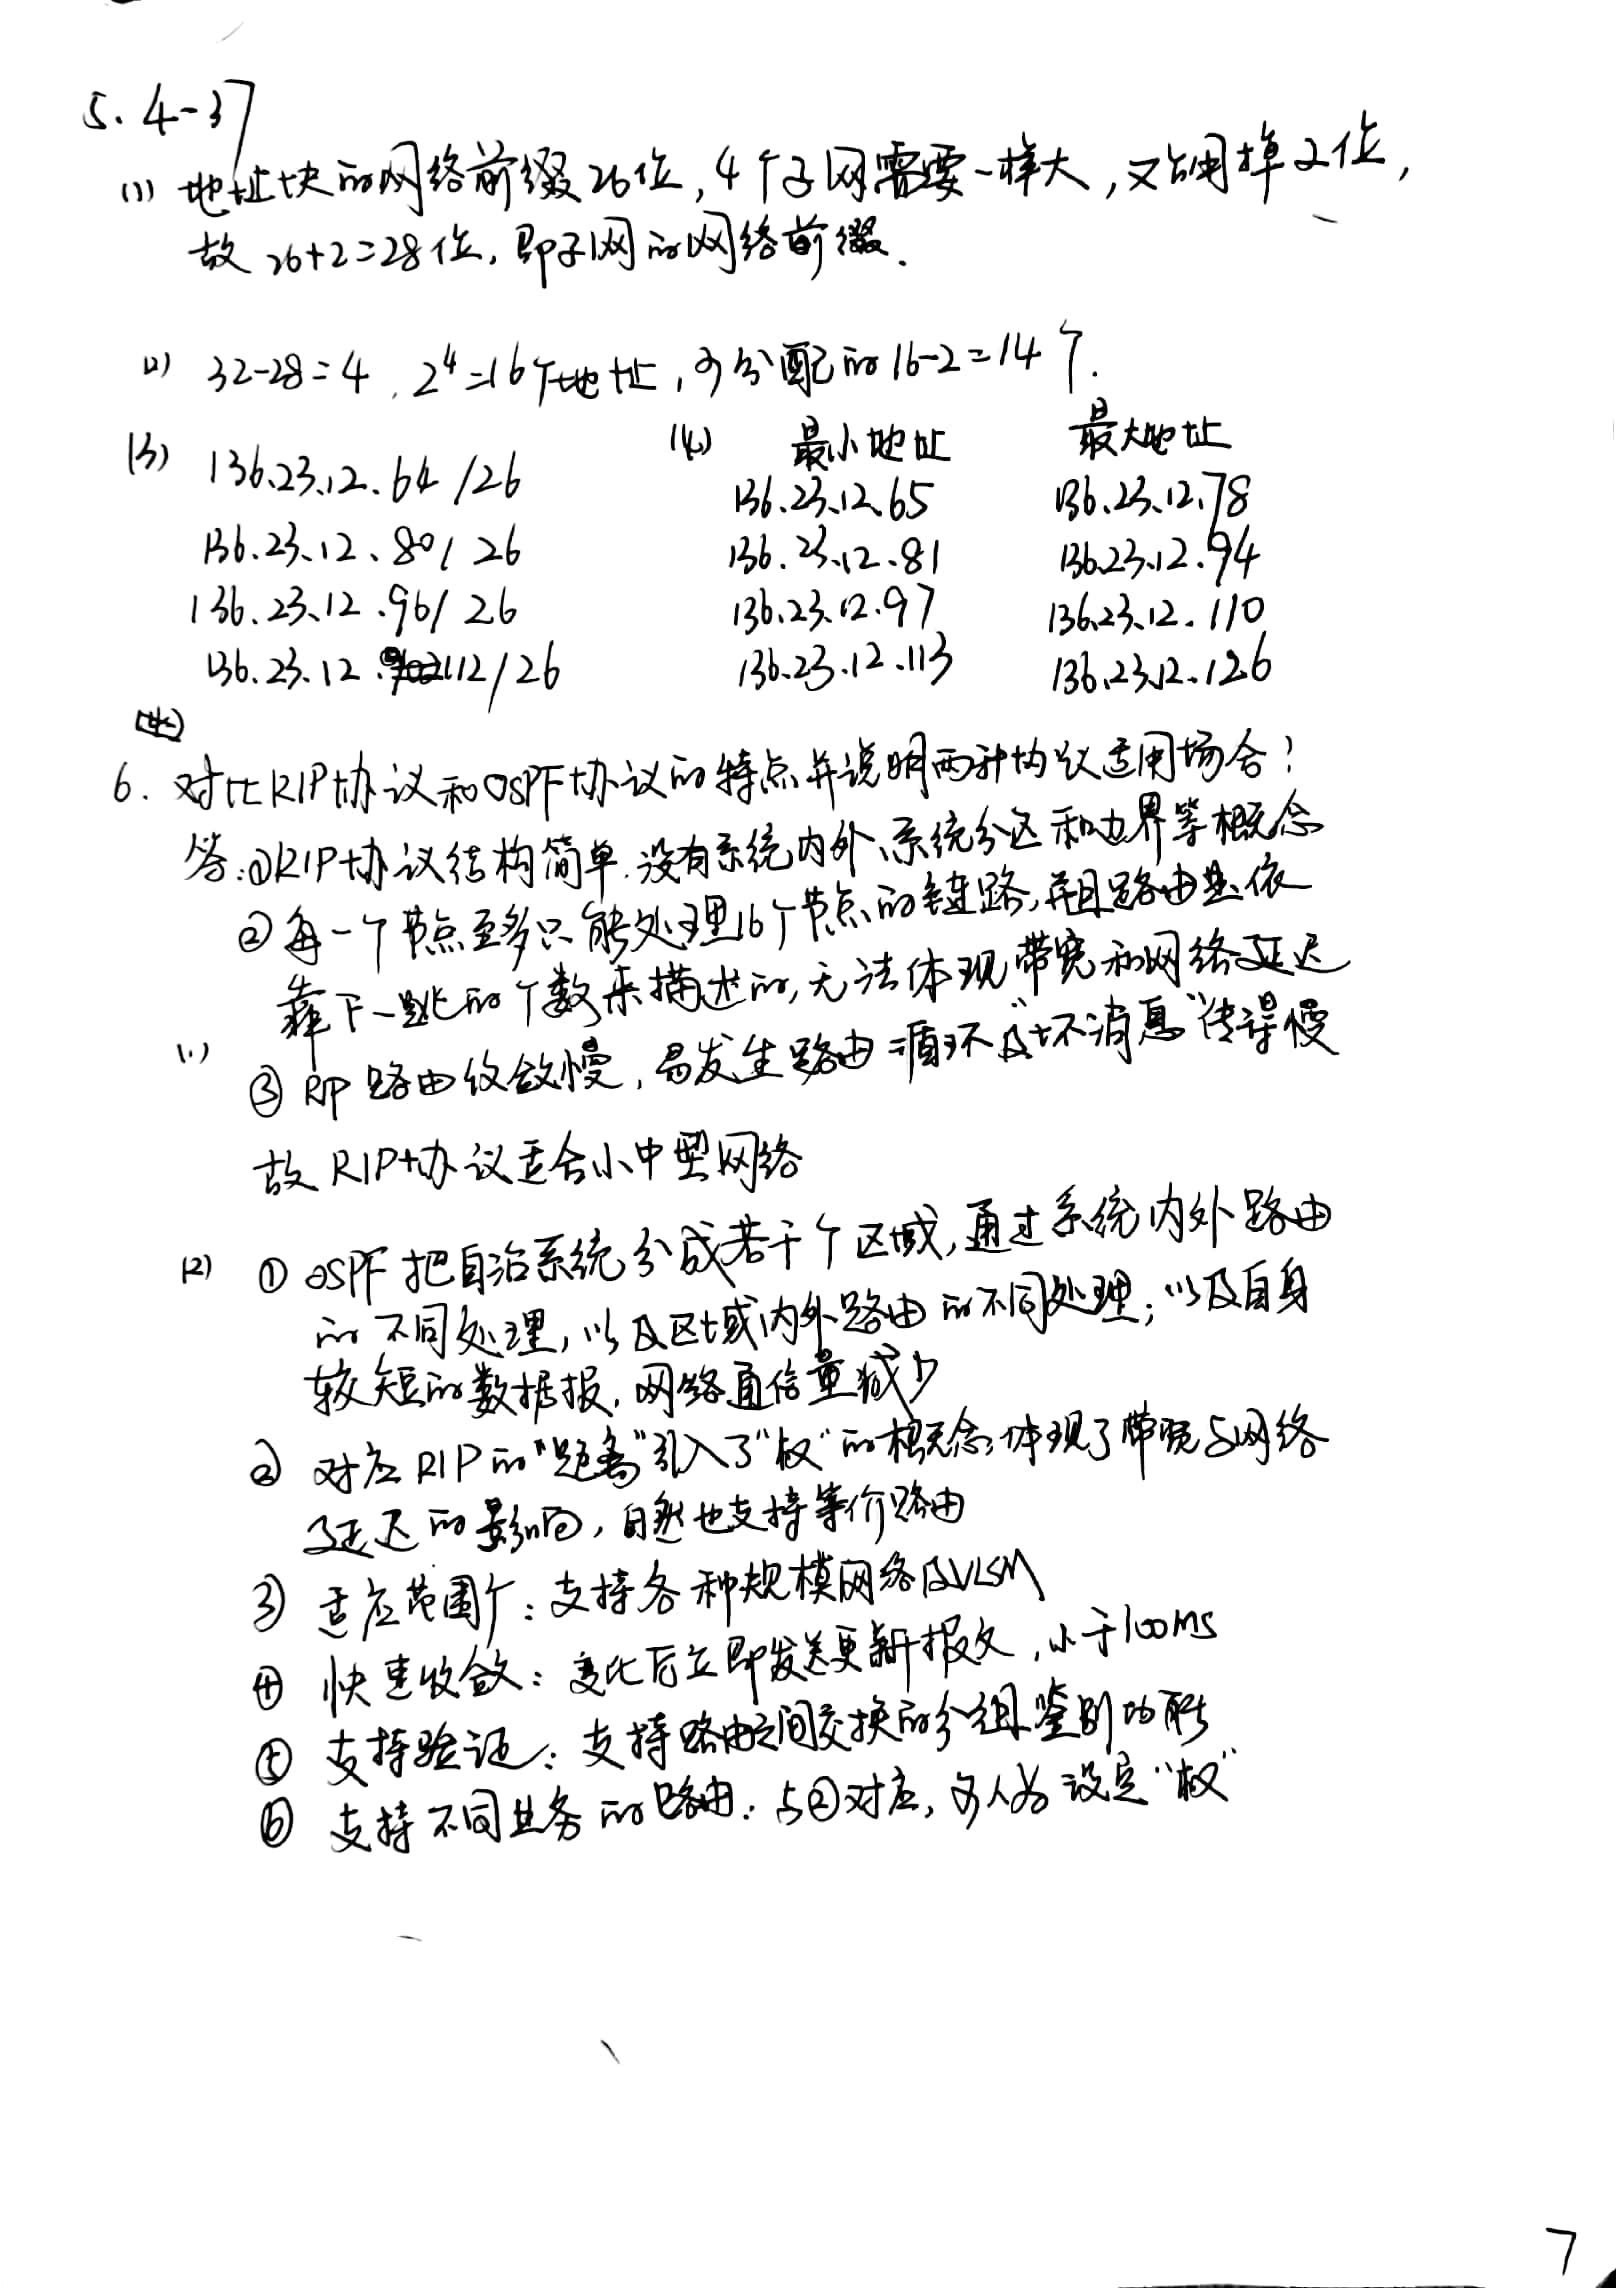 5. 4-37
(1) 地址块的网络前缀26位,4个子网需要一样大,又占用掉2位,
故 26+2=28位,即子网的网络前缀.
(2) 32-28=4 , 2⁴=16个地址,可分配的16-2=14个.
(3) (4) 最小地址 最大地址
136.23.12.64 /26 136.23.12.65 136.23.12.78
136.23.12.80/ 26 136.23.12.81 136.23.12.94
136.23.12.96/ 26 136.23.12.97 136.23.12.110
136.23.12.112/26 136.23.12.113 136.23.12.126
6. 对比RIP协议和OSPF协议的特点并说明两种协议适用场合?
答:①RIP协议结构简单.没有系统内外、系统分区和边界等概念
② 每一个节点至多只能处理16个节点的链路,并且路由是依
靠下一跳的个数来描述的,无法体现带宽和网络延迟
(1)
③ RIP路由收敛慢,易发生路由循环及"坏消息"传得慢
故RIP协议适合小中型网络
(2) ① OSPF把自治系统分成若干个区域,通过系统内外路由
的不同处理,以及区域内外路由的不同处理;以及自身
较短的数据报,网络通信量减少
② 对应RIP的"距离"引入了"权"的概念,体现了带宽与网络
延迟的影响,自然也支持等价路由
③ 适应范围广:支持各种规模网络及VLSM
④ 快速收敛:变化后立即发送更新报文,小于100ms
⑤ 支持验证:支持路由之间交换的分组鉴别功能
⑥ 支持不同业务的路由:与②对应,可人为设定"权"
7